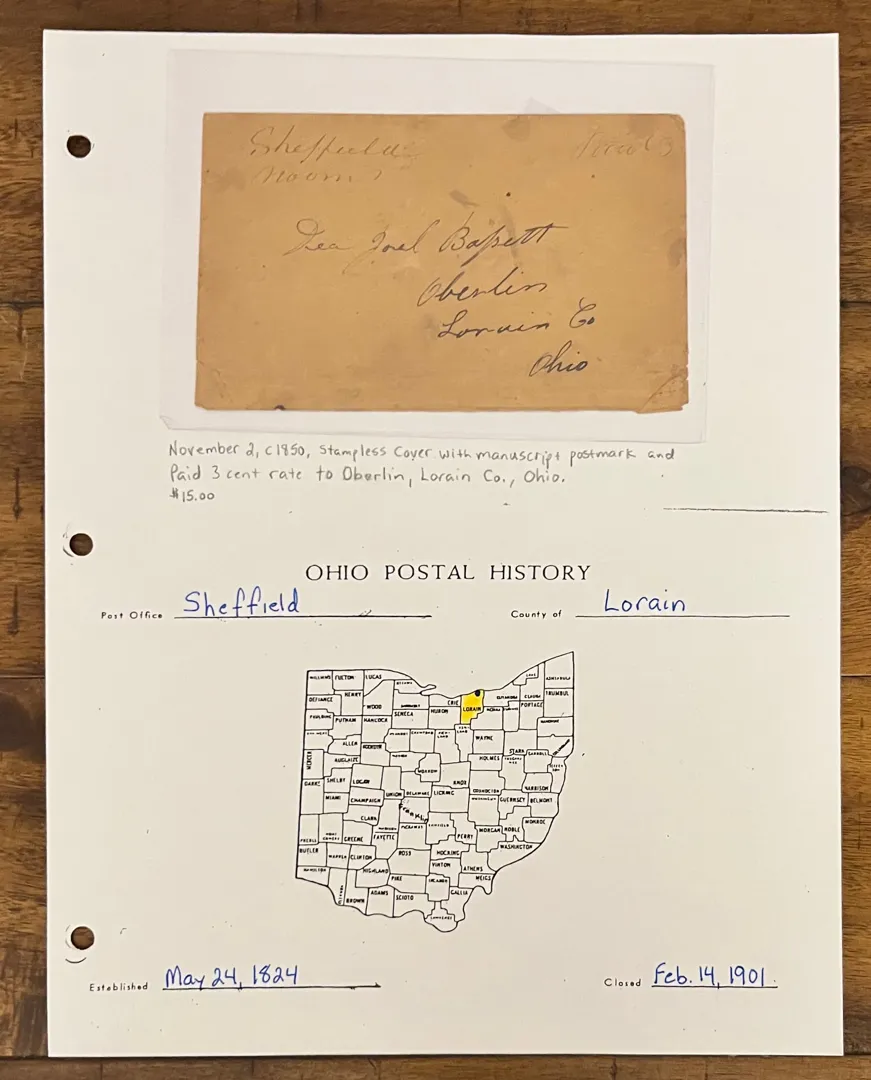 Sheffield
Paid 3
Dea Joel Bassett
Oberlin
Lorain Co
Ohio
November 2, c1850, Stampless Cover with manuscript postmark and
Paid 3 cent rate to Oberlin, Lorain Co., Ohio.
$15.00
OHIO POSTAL HISTORY
Post Office Sheffield County of Lorain
WILLIAMS FULTON LUCAS OTTAWA LAKE ASHTABULA
DEFIANCE HENRY WOOD SANDUSKY ERIE LORAIN CUYAHOGA GEAUGA TRUMBUL
PAULDING PUTNAM HANCOCK SENECA HURON MEDINA SUMMIT PORTAGE MAHONING
VAN WERT ALLEN WYANDOT CRAWFORD WAYNE STARK
MERCER AUGLAIZE HARDIN MARION HOLMES CARROLL
DARKE SHELBY LOGAN MORROW KNOX COSHOCTON HARRISON
MIAMI CHAMPAIGN UNION DELAWARE LICKING GUERNSEY BELMONT
CLARK Franklin
PREBLE GREENE MADISON FAYETTE PICKAWAY FAIRFIELD PERRY MORGAN NOBLE MONROE
BUTLER WARREN CLINTON ROSS HOCKING WASHINGTON
HAMILTON HIGHLAND PIKE VINTON ATHENS
BROWN ADAMS SCIOTO GALLIA MEIGS
Established May 24, 1824 Closed Feb. 14, 1901.